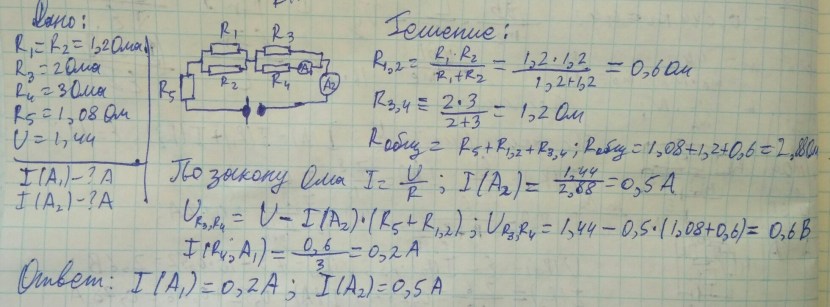 Дано:
R₁=R₂=1,2 Ома
R₃=2 Ома
R₄=3 Ома
R₅=1,08 Ом
U=1,44
I(A₁)-?A
I(A₂)-?A
R₁ R₃
R₂ R₄ A₁ A₂
R₅
Решение:
R₁,₂ = R₁·R₂/R₁+R₂ = 1,2·1,2/1,2+1,2 = 0,6 Ом
R₃,₄ = 2·3/2+3 = 1,2 Ом
Rобщ = R₅+R₁,₂+R₃,₄; Rобщ=1,08+1,2+0,6=2,88 Ом
По закону Ома I=U/R; I(A₂)=1,44/2,88=0,5A
U_R₃,R₄ = U-I(A₂)·(R₅+R₁,₂); U_R₃,R₄=1,44-0,5·(1,08+0,6)=0,6В
I(R₄;A₁)=0,6/3=0,2A
Ответ: I(A₁)=0,2A; I(A₂)=0,5A